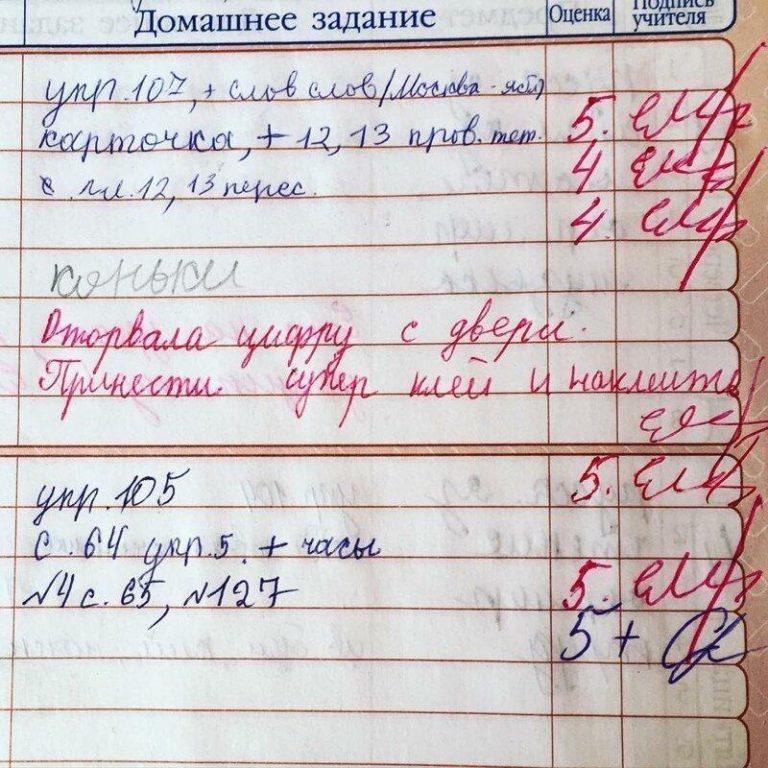 Домашнее задание Оценка Подпись учителя
упр. 107, + слов слов (Москва - ябл) 5.
карточка, + 12, 13 пров. тет. 4
с. 12, 13 перес. 4.
коньки
Оторвала цифру с двери.
Принести супер клей и наклеить
упр. 105 5.
с. 64 упр. 5. + часы
№4 с. 65, №127 5.
5+